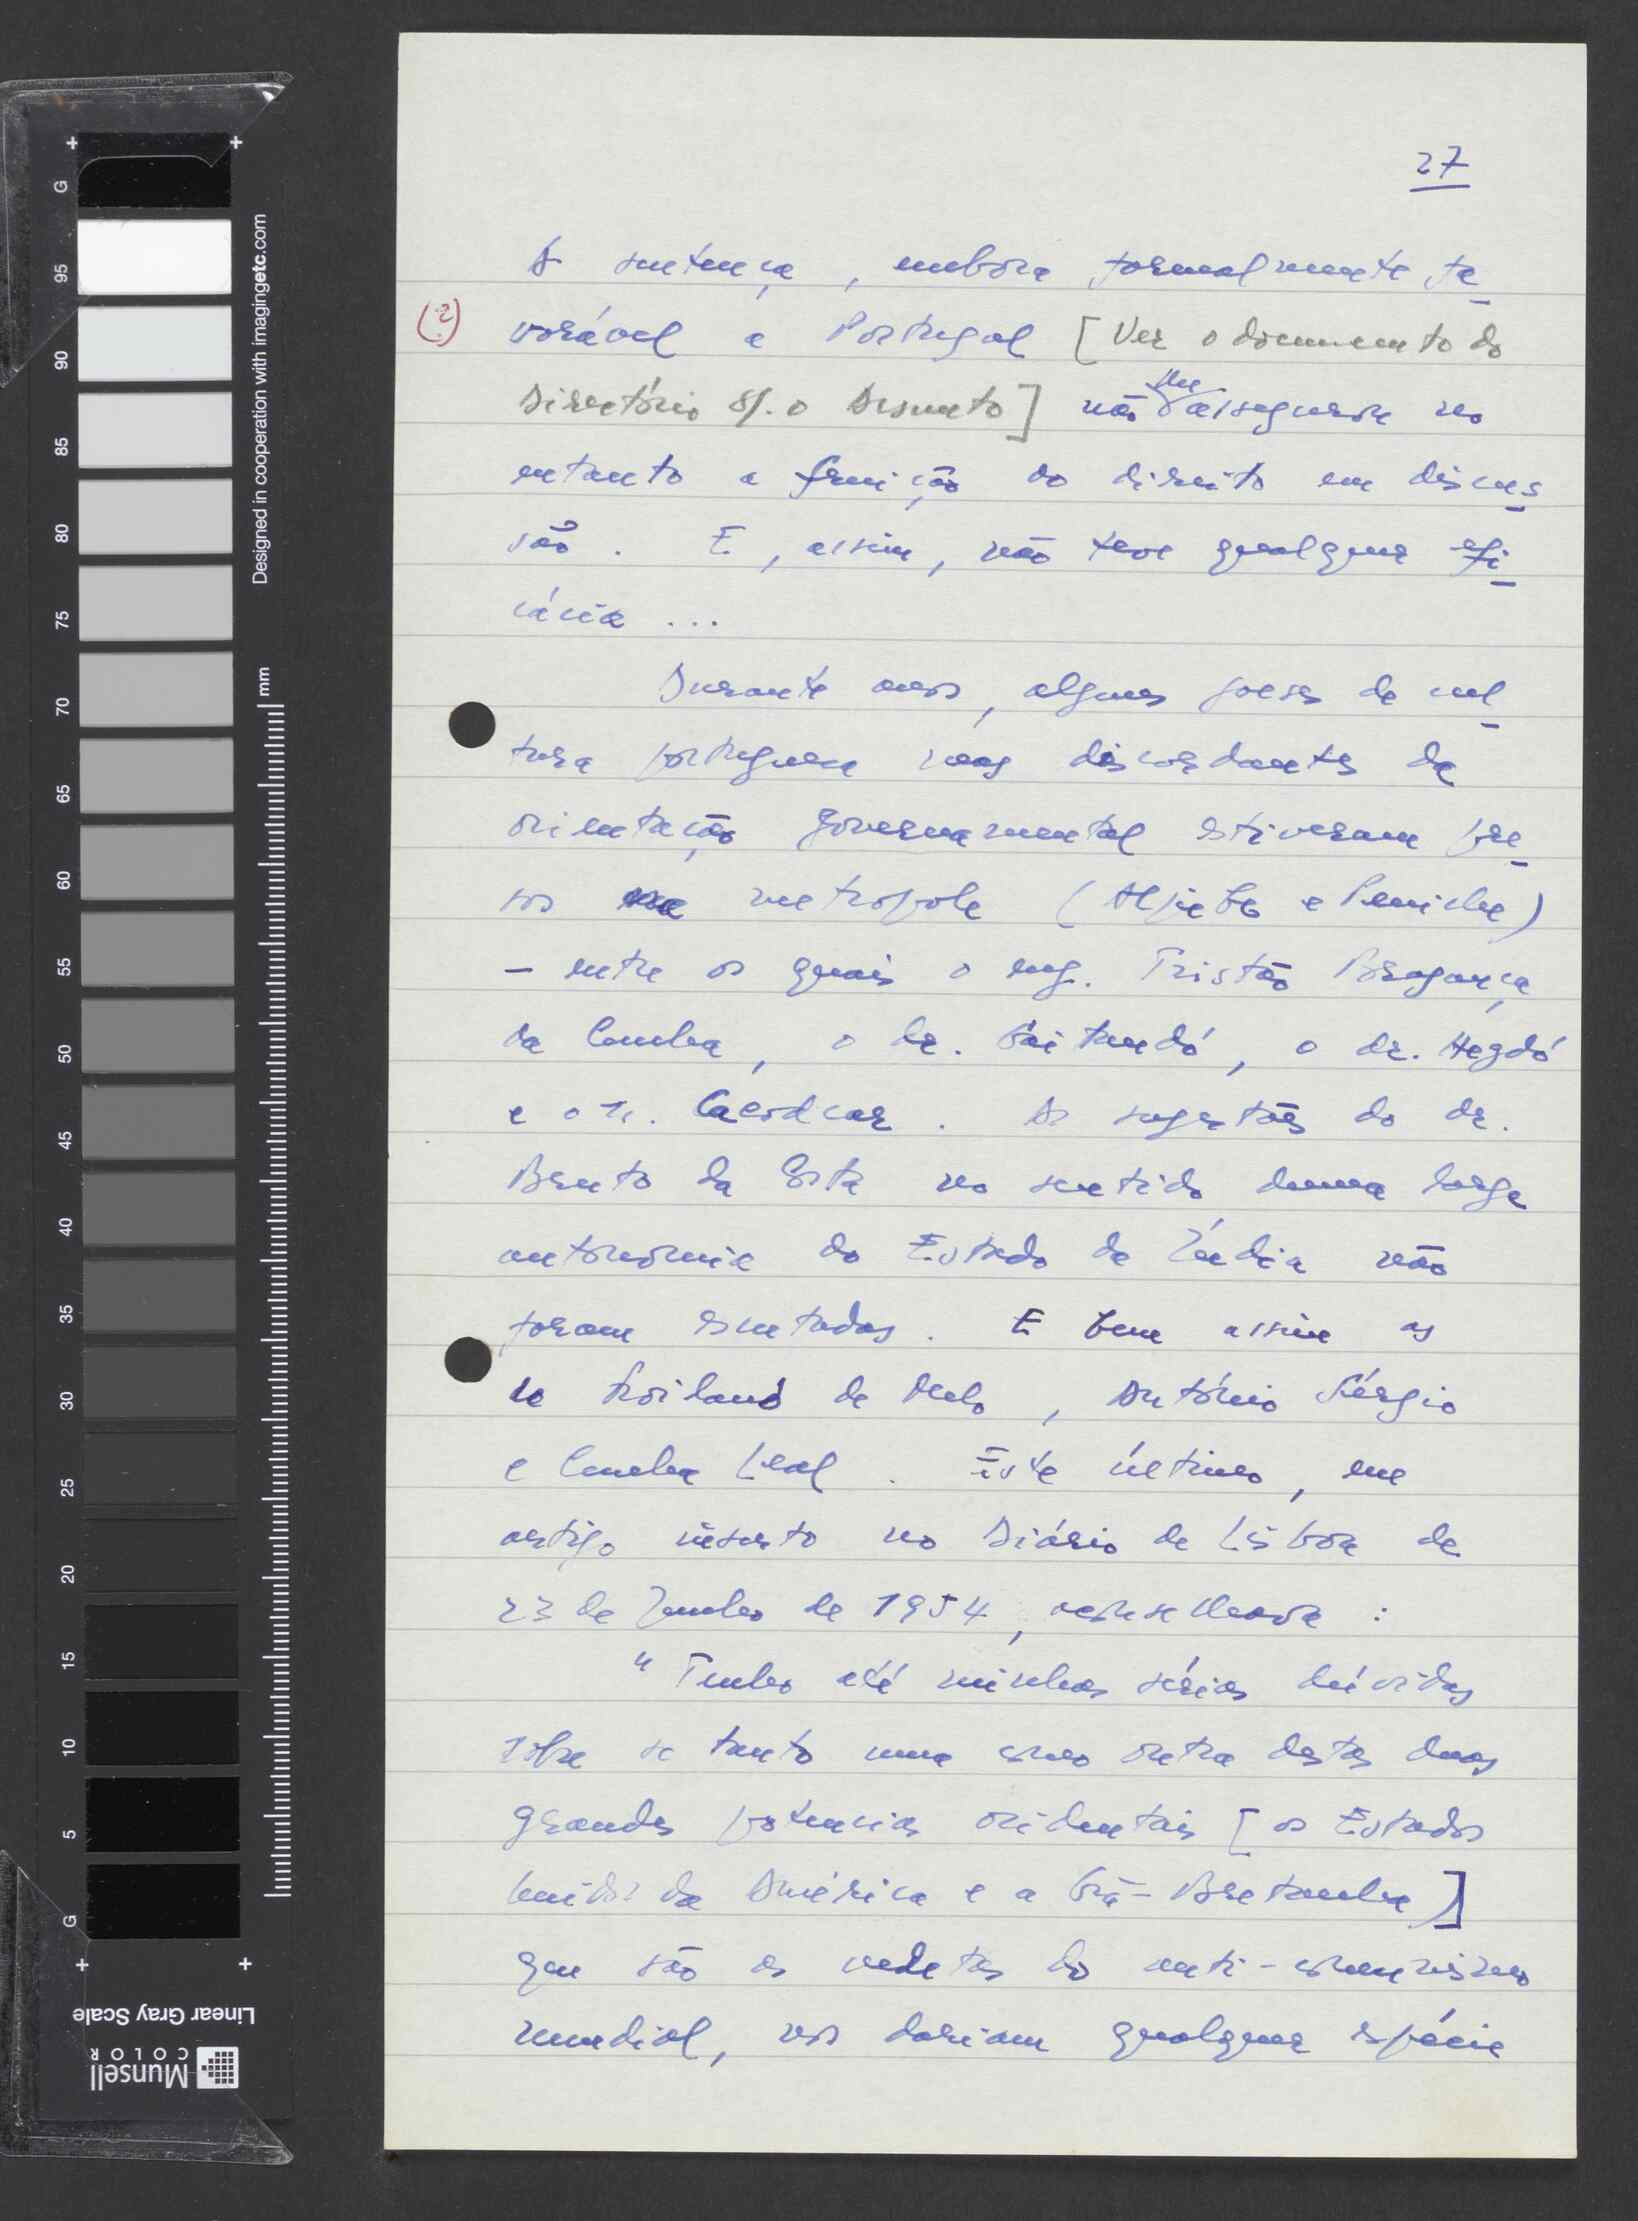 27
A sentença, embora formalmente fa
(2) vorável a Portugal [Ver o documento do
Directório s/. o Assunto] não lhe assegurou no
entanto a fruição do direito em discus
são. E, assim, não teve qualquer efi
cácia ...
Durante anos, alguns goeses de cul
tura portuguesa mas discordantes da
orientação governamental estiveram pre
sos na metropole (Aljube e Peniche)
- entre os quais o eng. Tristão Bragança
da Cunha, o dr. Gaitundó, o dr. Hegdó
e o Tr. Cacodcar. As sugestões do dr.
Bento da Costa no sentido duma larga
autonomia do Estado da Índia não
foram escutadas. E bem assim as
de Froilano de Melo, António Sérgio
e Cunha Leal. Este último, em
artigo inserto no Diário de Lisboa de
23 de Junho de 1954, aconselhava :
"Tenho até minhas sérias dúvidas
sobre se tanto uma como outra destas duas
grandes potencias ocidentais [os Estados
Unidos da América e a Grã-Bretanha]
que são as vedetas do anti-comunismo
mundial, nos dariam qualquer espécie
Designed in cooperation with imagingetc.com
mm
G 95 90 85 80 75 70 65 60 55 50 45 40 35 30 25 20 15 10 5 G
Linear Gray Scale
Munsell
COLOR